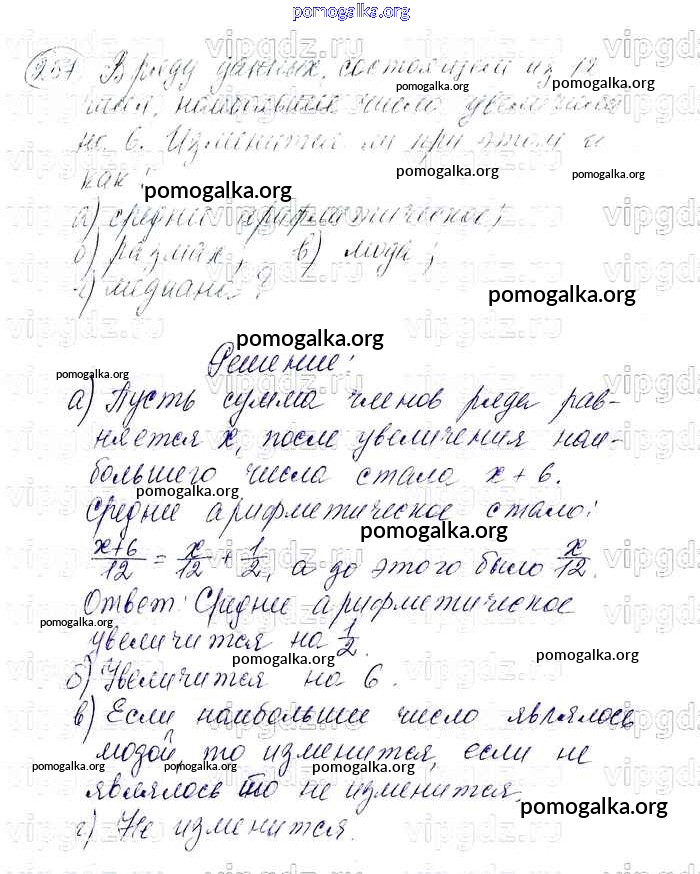 pomogalka.org
257 В ряду данных, состоящем из 12
чисел, наибольшее число увеличили
на 6. Изменится ли при этом и
как:
а) среднее арифметическое;
б) размах; в) мода;
г) медиана?
Решение:
а) Пусть сумма членов ряда рав-
няется x, после увеличения наи-
большего числа стала x + 6.
Среднее арифметическое стало:
(x+6)/12 = x/12 + 1/2, а до этого было x/12.
Ответ: Среднее арифметическое
увеличится на 1/2.
б) Увеличится на 6.
в) Если наибольшее число являлось
модой то изменится, если не
являлось то не изменится
г) Не изменится.